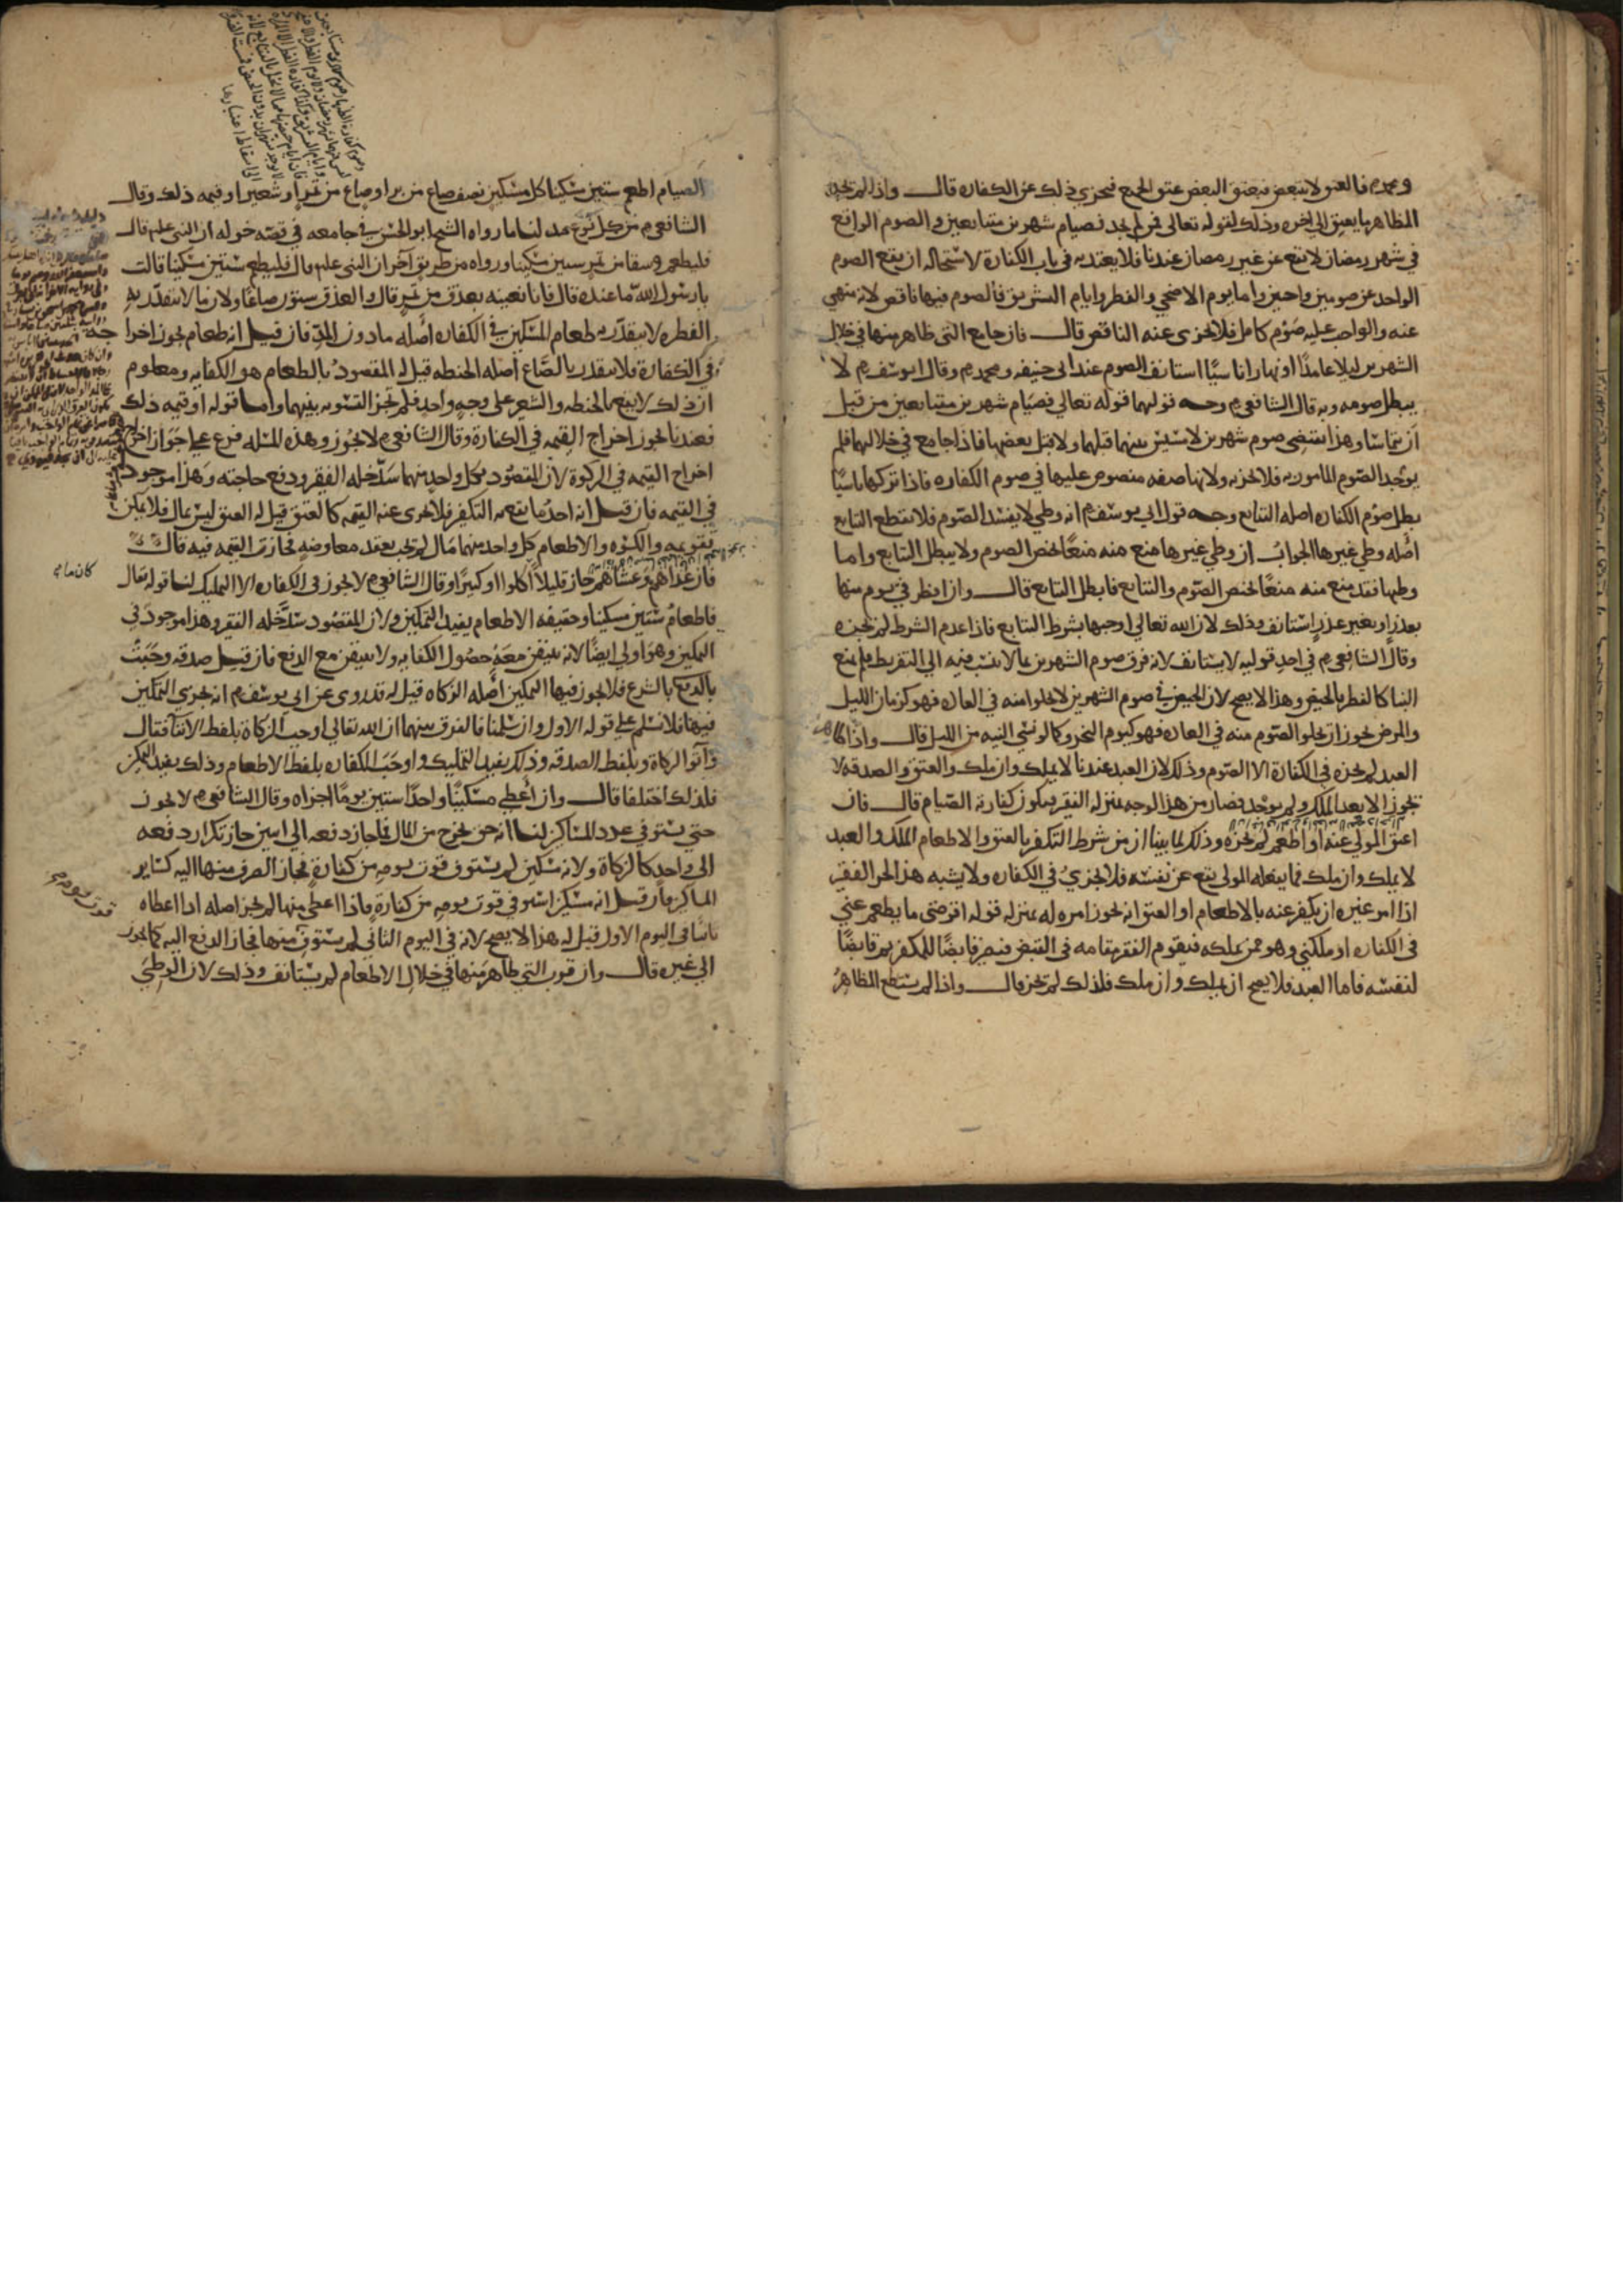 ومحمد م فالعتق لا يتبعض فبعتق البعض عتق الجميع فيجزي ذلك عن الكفاره قال واذا لم يجد
المظاهر ما يعتق الى اخره وذلك لقوله تعالى فمن لم يجد فصيام شهرين متتابعين والصوم الواقع
في شهر رمضان لا يقع عن غير رمضان عندنا فلا يعتد به في باب الكفارة لاستحاله ان يقع الصوم
الواحد عن صومين واجبين واما يوم الاضحي والفطر وايام التشريق فالصوم فيها ناقص لانه منهي
عنه والواجب عليه صوم كامل فلا يجزى عنه الناقص قال فان جامع التي ظاهر منها في خلال
الشهرين ليلا عامدا او نهارا ناسيا استانف الصوم عند ابي حنيفه ومحمد م وقال ابو يوسف م لا
يبطل صومه وبه قال الشافعي م وجه قولهما قوله تعالي فصيام شهرين متتابعين من قبل
ان يتماسا وهذا يقتضي صوم شهرين لا مسيس بينهما قبلهما ولا قبل بعضهما فاذا جامع في خلالهما فلم
يوجد الصوم المامور به فلا يجزيه ولانها صفه منصوص عليها في صوم الكفاره فاذا تركها ناسيا
بطل صوم الكفاره اصله التتابع وجه قول ابي يوسف م انه وطي لا يفسد الصوم فلا يقطع التتابع
اصله وطي غيرها الجواب ان وطي غيرها منع منه منعا يخص الصوم ولا يبطل التتابع واما
وطيها فقد منع منه منعا يختص الصوم والتتابع فابطل التتابع قال وان افطر في يوم منها
بعذر او بغير عذر استانف وذلك لان الله تعالي اوجبها بشرط التتابع فاذا عدم الشرط لم تجزه
وقال الشافعي م في احد قوليه لا يستانف لانه فرق صوم الشهرين بما لا ينسب فيه الي التفريط فلم يمنع
البنا كالفطر بالحيض وهذا لا يصح لان الحيض في صوم الشهرين لا يخلوا منه في العاده فهو كزمان الليل
والمرض يجوز ان يخلو الصوم منه في العاده فهو كيوم النحر وكما لو نسي النيه من الليل قال واذا ظاهر
العبد لم يجزه في الكفارة الا الصوم وذلك لان العبد عندنا لا يملك وان ملك والعتق والصدقه لا
تجوز الا بعد الملك ولم يوجد فصار من هذا الوجه بمنزله الفقير فيكون كفارته الصيام قال فان
اعتق المولي عنه او اطعم لم يجزه وذلك لما بينا ان من شرط التكفير بالعتق والاطعام الملك والعبد
لا يملك وان ملك فما يفعله المولى يقع عن نفسه فلا يجزي في الكفاره ولا يشبه هذا الحر الفقير
اذا امر غيره ان يكفر عنه بالاطعام او العتق انه يجوز امره له بمنزله قوله اقرضني ما يطعم عني
في الكفاره او ملكني وهو ممن يملك فيقوم الفقير مقامه في القبض فيصير قابضا للمكفر ثم قابضا
لنفسه فاما العبد فلا يصح ان يملك وان ملك فلذلك لم يجز قال واذا لم يستطع المظاهر
الصيام اطعم ستين مسكينا كل مسكين نصف صاع من بر او صاع من تمر او شعير او قيمه ذلك وقال
الشافعي م من كل نوع مد لنا ما رواه الشيخ ابو الحسن في جامعه في قصه خوله ان النبي علم قال
فليطعم وسقا من تمر ستين مسكينا ورواه من طريق اخر ان النبي علم قال فليطعم ستين مسكينا قالت
يا رسول الله ما عنده قال فانا نعينه بعذق من تمر قال والعذق ستون صاعا ولان ما لا يتقدر به
الفطره لا يتقدر به طعام المسكين في الكفاره اصله ما دون المد فان قيل انه طعام يجوز اخراجه
في الكفارة فلا يتقدر بالصاع اصله الحنطه قيل له المقصود بالطعام هو الكفايه ومعلوم
ان ذلك لا يقع بالحنطه والشعير على وجه واحد فلم تجز التسويه بينهما واما قوله او قيمه ذلك
فعندنا يجوز اخراج القيمه في الكفارة وقال الشافعي م لا يجوز وهذه المسله فرع على جواز اخراج
اخراج القيمه في الزكوة لان المقصود بكل واحد منهما سد خله الفقير ودفع حاجته وهذا موجود
في القيمه فان قيل انه احد ما يقع به التكفير فلا يجزى عنه القيمه كالعتق قيل له العتق ليس بمال فلا يمكن
تقويمه والكسوه والاطعام كل واحد منهما مال لم يجب بعقد معاوضه فجازت القيمه فيه قال
فان غداهم وعشاهم جاز قليلا اكلوا او كثيرا وقال الشافعي م لا يجوز في الكفاره الا التمليك لنا قوله تعالي
فاطعام ستين مسكينا وحقيقه الاطعام يفيد التمكين ولان المقصود سد خله الفقير وهذا موجود في
التمكين وهو اولي ايضا لانه يتيقن معه حصول الكفايه ولا يتيقن مع الدفع فان قيل صدقه وجبت
بالدفع بالشرع فلا يجوز فيها التمكين اصله الزكاه قيل له قد روى عن ابي يوسف م انه يجزي التمكين
فيها فلا نسلم علي قوله الاول وان سلمنا فالفرق بينهما ان الله تعالي اوجب الزكاة بلفظ الايتا فقال
واتوا الزكاة وبلفظ الصدقه وذلك يفيد التمليك واوجب الكفاره بلفظ الاطعام وذلك يفيد التمكين
فلذلك اختلفا قال وان اعطي مسكينا واحدا ستين يوما اجزاه وقال الشافعي م لا يجوز
حتي يستوفي عدد المساكين لنا انه حق يخرج من المال فلما جاز دفعه الي اثنين جاز تكرار دفعه
الى واحد كالزكاة ولانه مسكين لم يستوف قوت يومه من كفارة فجاز الصرف منها اليه كساير
المساكين فان قيل انه مسكين استوفي قوت يومه من كفارة فاذا اعطي منها لم يجز اصله اذا اعطاه
ثانيا في اليوم الاول قيل له هذا لا يصح لانه في اليوم الثاني لم يستوف منها فجاز الدفع اليه كما يجوز
الي غيره قال وان قرب التي ظاهر منها في خلال الاطعام لم يستانف وذلك لان الوطي